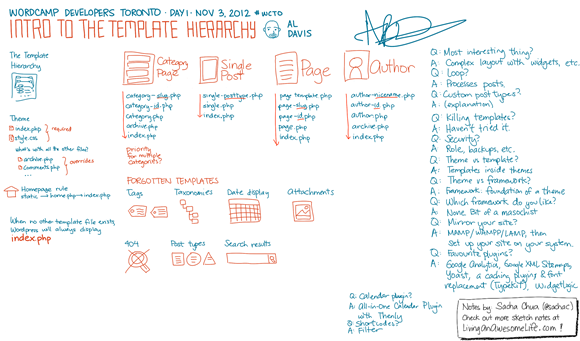 WORDCAMP DEVELOPERS TORONTO · DAY 1 · NOV 3, 2012 #WCTO
INTRO TO THE TEMPLATE HIERARCHY
AL DAVIS
The Template Hierarchy
Theme
index.php
style.css
required
what's with all the other files?
archive.php
comments.php
...
overrides
Homepage rule
static → home.php → index.php
When no other template file exists,
Wordpress will always display
index.php
Category Page
category-slug.php
category-id.php
category.php
archive.php
index.php
priority
for multiple
categories?
Single Post
single-posttype.php
single.php
index.php
Page
page template.php
page-slug.php
page-id.php
page.php
index.php
Author
author-nicename.php
author-id.php
author.php
archive.php
index.php
FORGOTTEN TEMPLATES
Tags
Taxonomies
Date display
Attachments
404
Post types
Search results
Q: Most interesting thing?
A: Complex layout with widgets, etc.
Q: Loop?
A: Processes posts
Q: Custom post types?
A: (explanation)
Q: Killing templates?
A: Haven't tried it.
Q: Security?
A: Role, backups, etc.
Q: Theme vs template?
A: Templates inside themes
Q: Theme vs framework?
A: Framework: foundation of a theme
Q: Which framework do you like?
A: None. Bit of a masochist
Q: Mirror your site?
A: MAMP/WAMPP/LAMP, then
set up your site on your system.
Q: Favourite plugins?
A: Google Analytics, Google XML Sitemaps,
Yoast, a caching plugins & font
replacement (Typekit), Widgetlogic
Q: Calendar plugin?
A: All-in-One Calendar Plugin
with Thenly
Q: Shortcodes?
A: Filter
Notes by Sacha Chua (@sachac)
Check out more sketch notes at
LivingAnAwesomeLife.com!